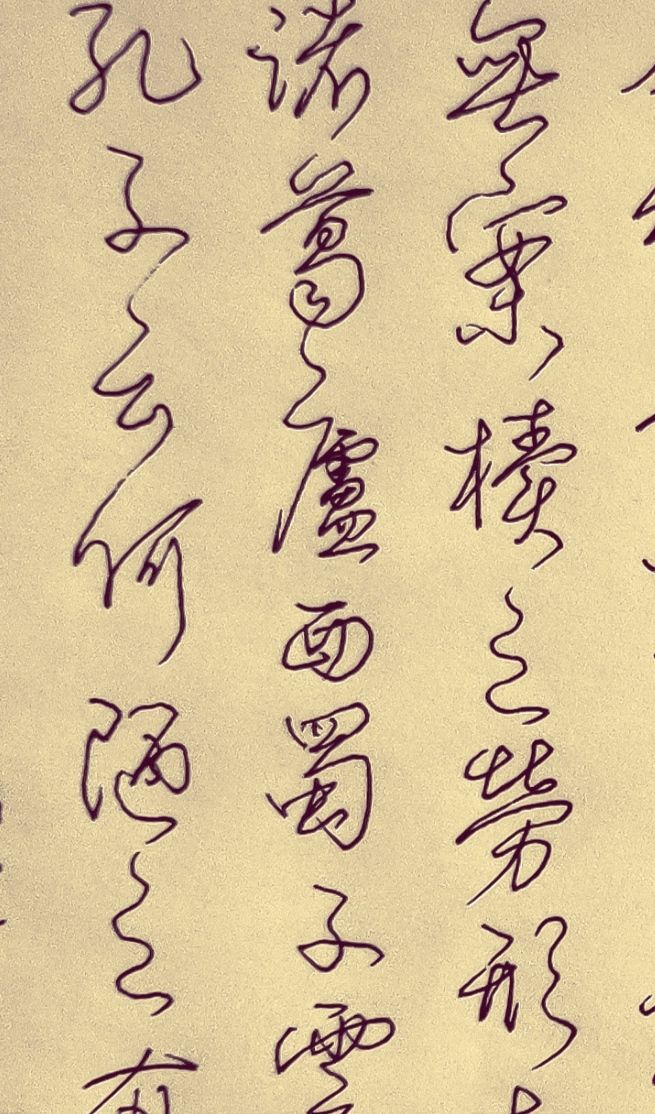 無案牘之勞形
諸葛廬西蜀子雲
孔子云何陋之有